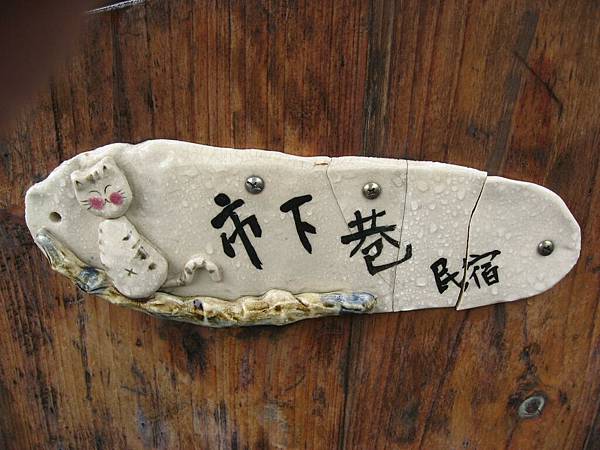 市下巷民宿